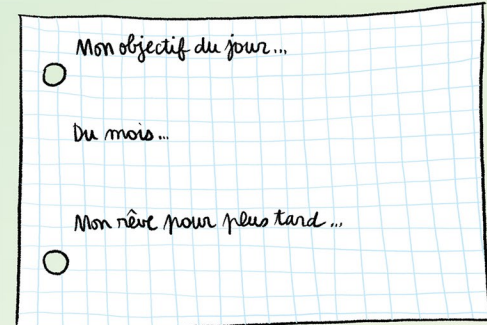 Mon objectif du jour...
Du mois...
Mon rêve pour plus tard...